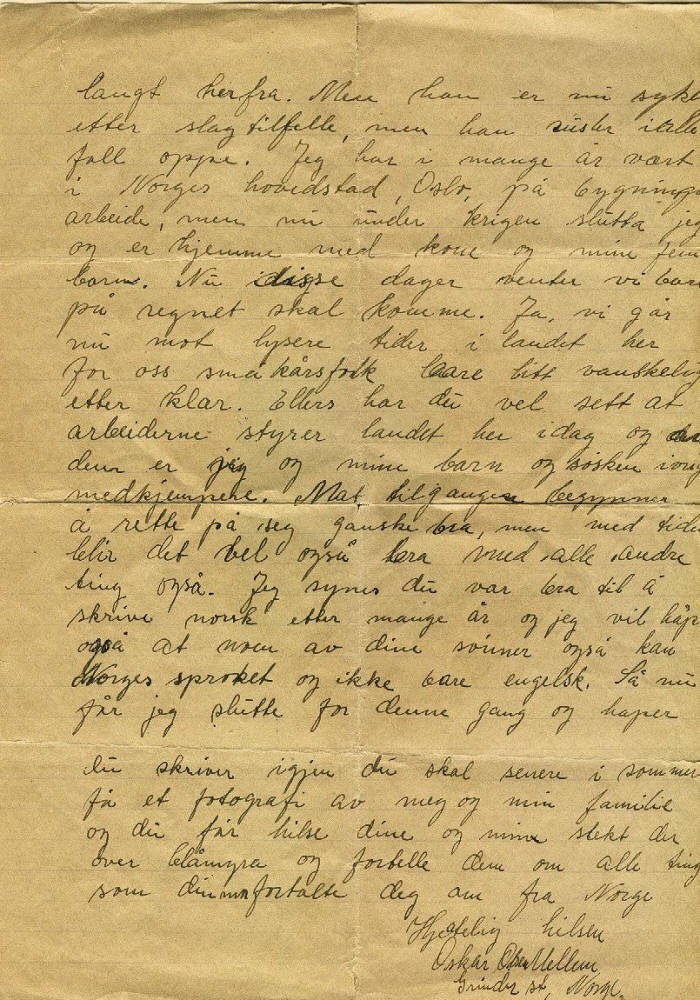 langt herfra. Men han er nu syk
etter slagtilfelle, men han ialle
fall oppe. Jeg har i mange år vært
i Norges hovedstad, Oslo, på bygnings
arbeide, men nu under krigen slutta jeg
og er hjemme med kone og mine fem
barn. Nu i disse dager venter vi bare
på regnet skal komme. Ja, vi går
nu mot lysere tider i landet her
for oss småkårsfolk bare litt vanskelig
etter klar. Ellers har du vel sett at
arbeiderne styrer landet her idag og
dem er jeg og mine barn og søsken ivrig
medkjempere. Mat tilgangen begynner
å rette på seg ganske bra, men med tide
blir det vel også bra med alle andre
ting også. Jeg synes du var bra til å
skrive norsk etter mange år og jeg vil håp
også at noen av dine sønner også kan
Norges sproket og ikke bare engelsk. Så nu
får jeg slutte for denne gang og haper
du skriver igjen du skal senere i sommer
få et fotografi av meg og min familie
og du får hilse dine og mine slekt der
over blåmyra og fortelle dem om alle ting
som fortalte deg om fra Norge
Hjertelig hilsen
Oskar Olsen Mellem
Grinder st, Norge.